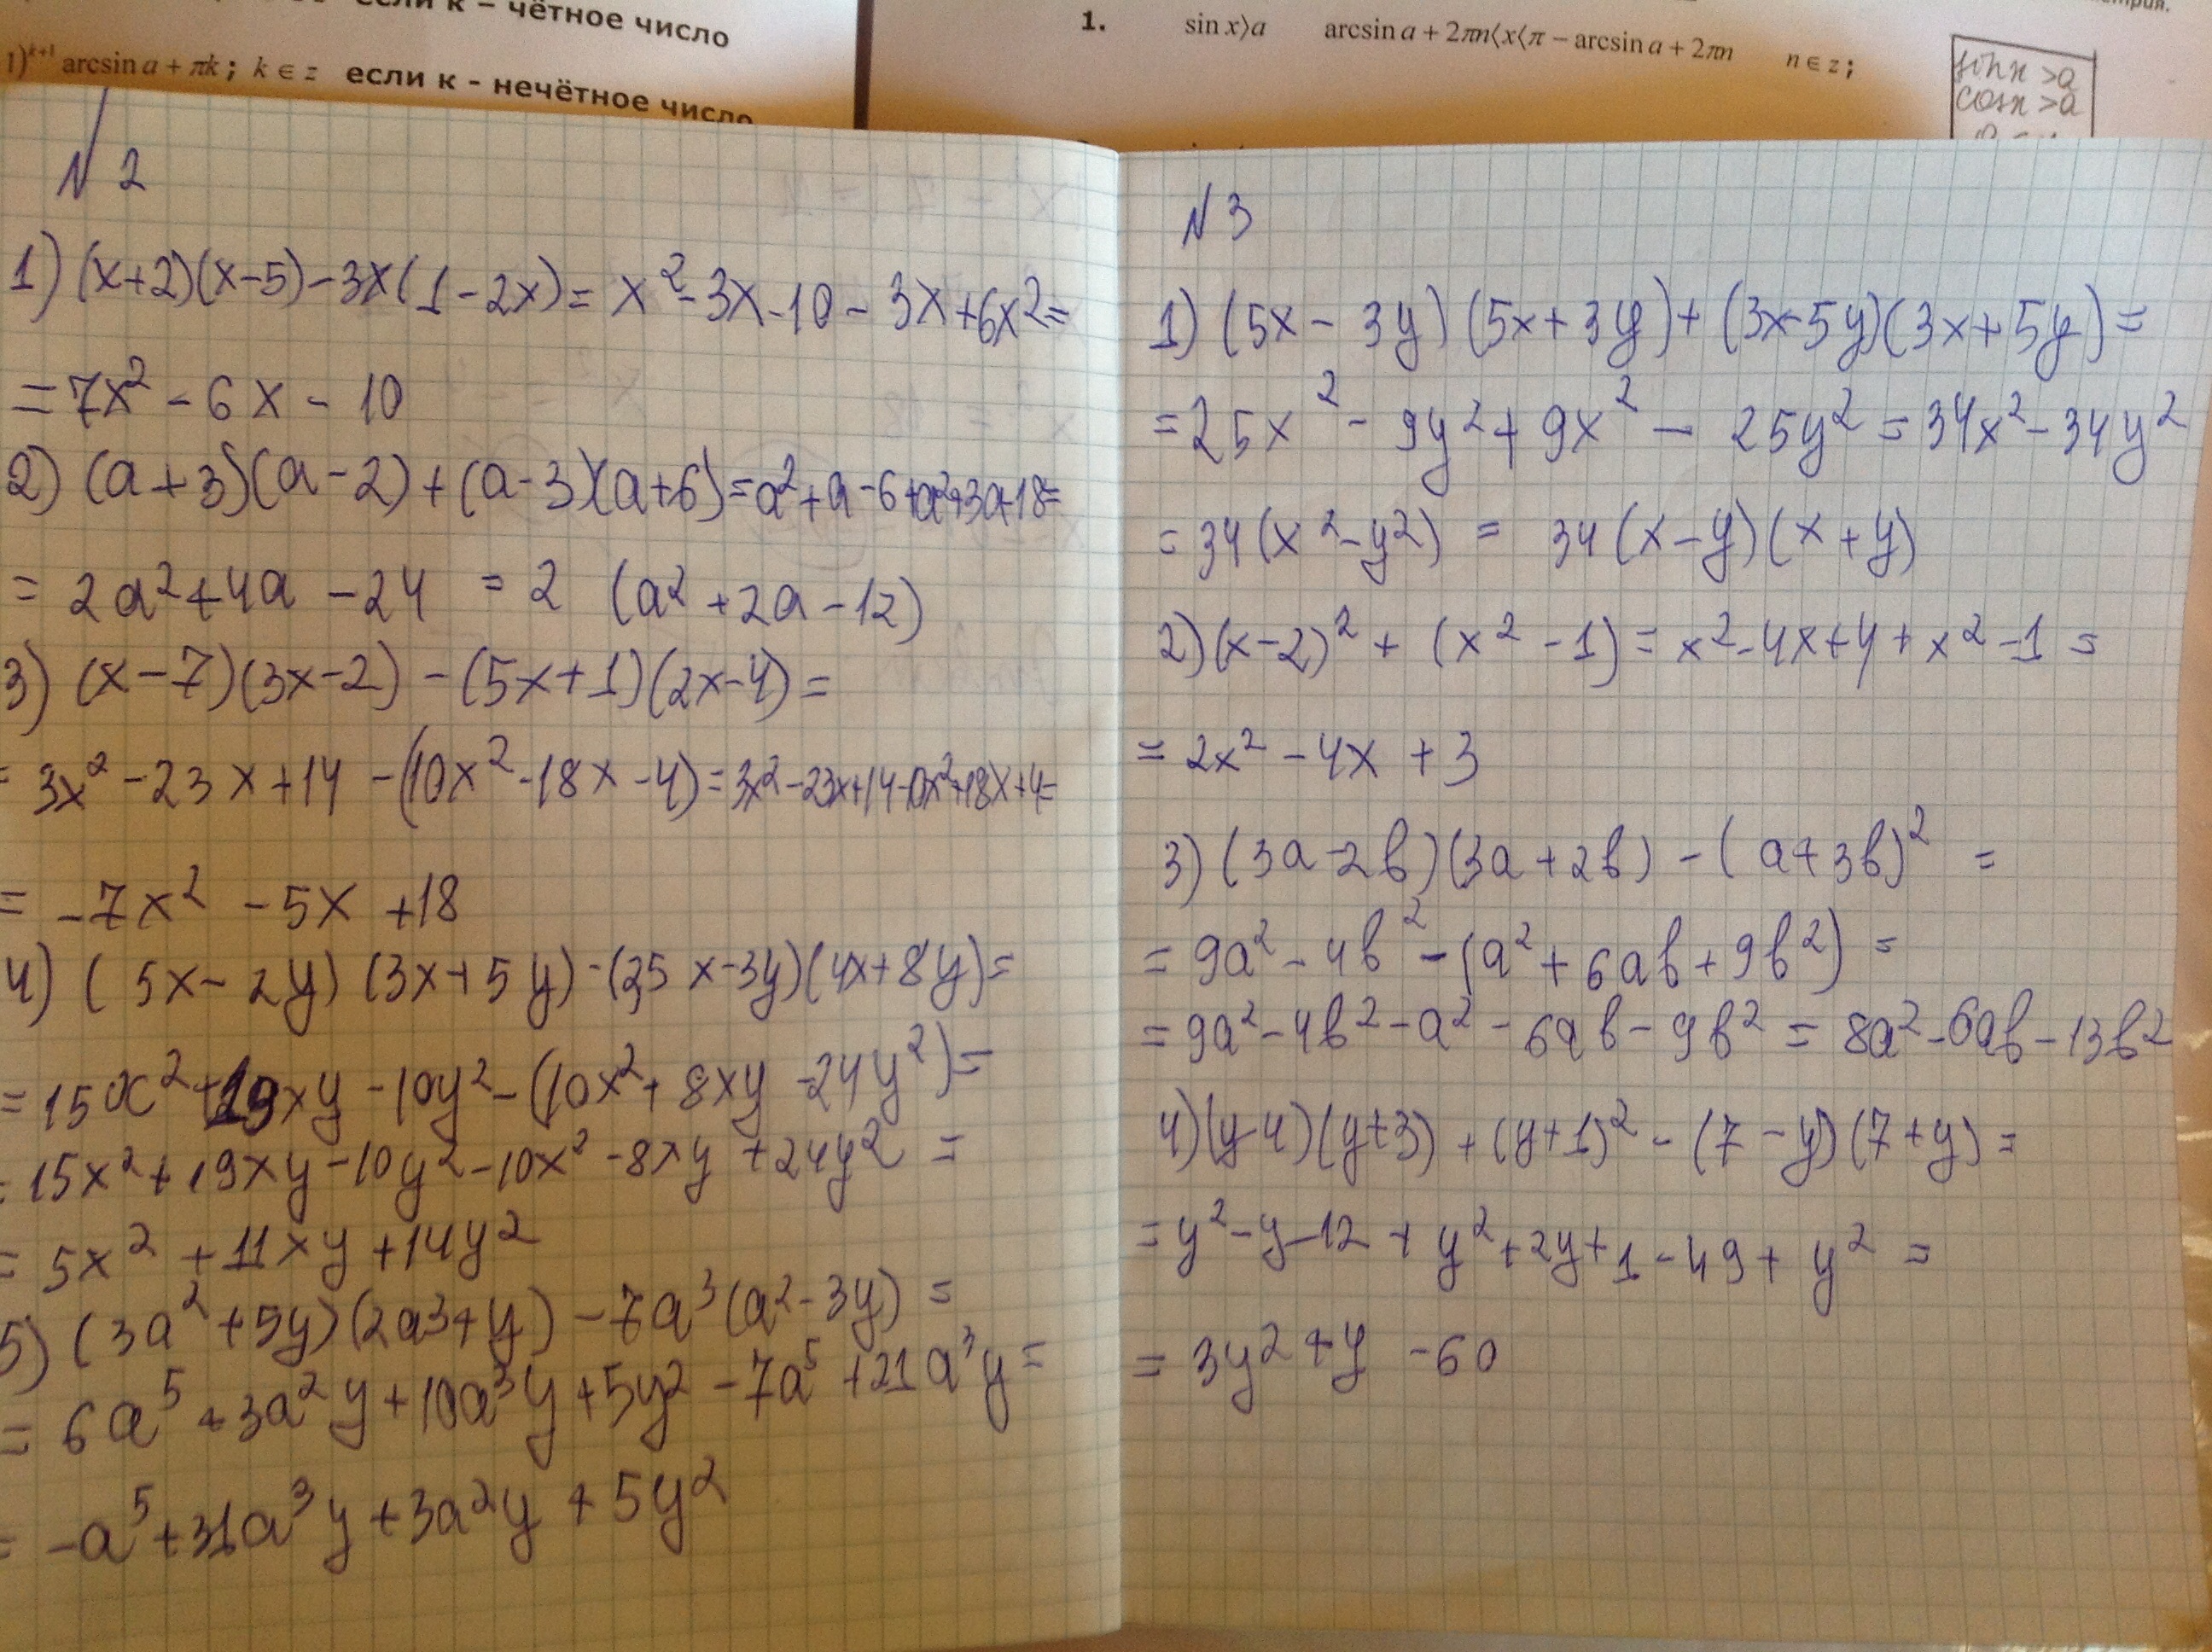 если к – чётное число
1)^{k+1} arcsin a + πk ; k ∈ z если к - нечётное число
1. sin x⟩a arcsin a + 2πn⟨x⟨π − arcsin a + 2πn n ∈ z ;
sin x > a
cos x > a
N 2
1) (x+2)(x-5)-3x(1-2x)= x²-3x-10-3x+6x²=
=7x²-6x-10
2) (a+3)(a-2)+(a-3)(a+6)=a²+a-6+a²+3a-18=
= 2a²+4a-24 = 2 (a²+2a-12)
3) (x-7)(3x-2)-(5x+1)(2x-4)=
= 3x²-23x+14-(10x²-18x-4)=3x²-23x+14-10x²+18x+4=
= -7x²-5x+18
4) (5x-2y)(3x+5y)-(2,5x-3y)(4x+8y)=
=15x²+19xy-10y²-(10x²+8xy-24y²)=
=15x²+19xy-10y²-10x²-8xy+24y²=
= 5x²+11xy+14y²
5) (3a²+5y)(2a³+y)-7a³(a²-3y)=
= 6a⁵+3a²y+10a³y+5y²-7a⁵+21a³y=
= -a⁵+31a³y+3a²y+5y²
N 3
1) (5x-3y)(5x+3y)+(3x-5y)(3x+5y)=
=25x²-9y²+9x²-25y²=34x²-34y²
=34(x²-y²) = 34(x-y)(x+y)
2)(x-2)²+(x²-1)=x²-4x+4+x²-1=
= 2x²-4x+3
3) (3a-2b)(3a+2b)-(a+3b)² =
= 9a²-4b²-(a²+6ab+9b²)=
=9a²-4b²-a²-6ab-9b²=8a²-6ab-13b²
4)(y-4)(y+3)+(y+1)²-(7-y)(7+y)=
=y²-y-12+y²+2y+1-49+y²=
= 3y²+y-60